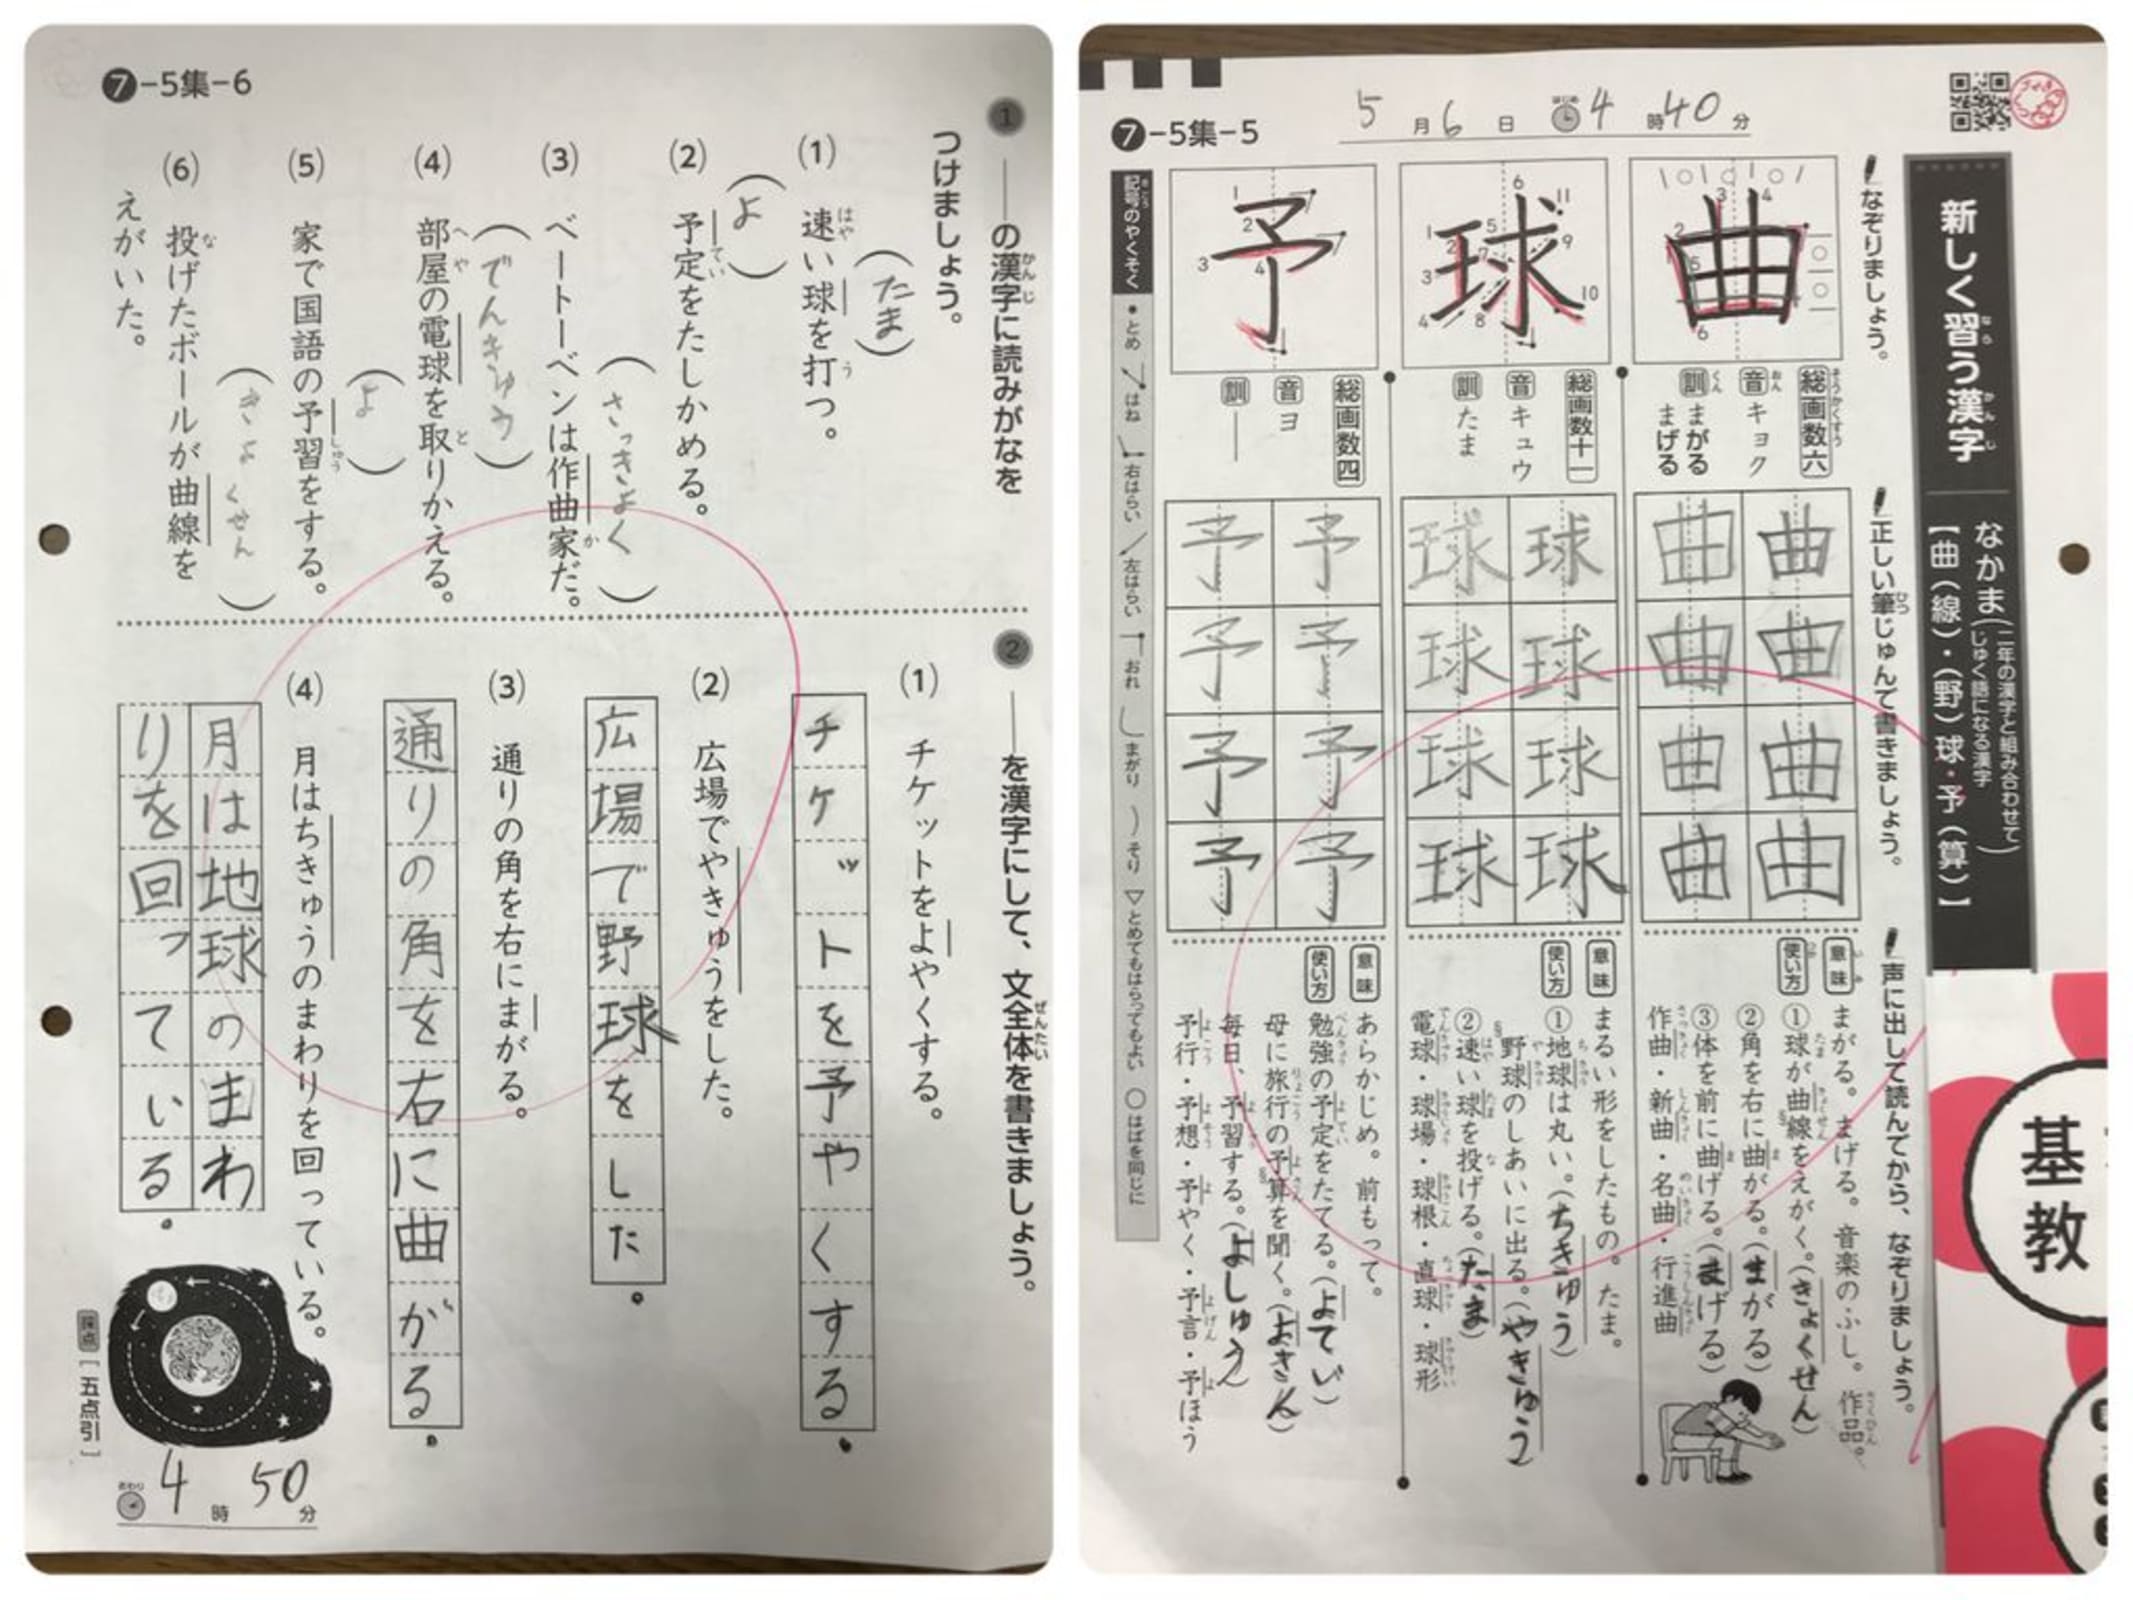 ❼-5集-6
① ――の漢字に読みがなを
つけましょう。
(1) 速い球を打つ。
(たま)
(2) 予定をたしかめる。
(よ)
(3) ベートーベンは作曲家だ。
(さっきょく)
(4) 部屋の電球を取りかえる。
(でんきゅう)
(5) 家で国語の予習をする。
(よ)
(6) 投げたボールが曲線を
えがいた。
(きょくせん)
② ――を漢字にして、文全体を書きましょう。
(1) チケットをよやくする。
チケットを予やくする。
(2) 広場でやきゅうをした。
広場で野球をした。
(3) 通りの角を右にまがる。
通りの角を右に曲がる。
(4) 月はちきゅうのまわりを回っている。
月は地球のまわ
りを回っている。
採点[五点引]
おわり 4時50分
❼-5集-5
5月6日 はじめ 4時40分
新しく習う漢字
なかま(二年の漢字と組み合わせてじゅく語になる漢字)
【曲(線)・(野)球・予(算)】
なぞりましょう。
正しい筆じゅんで書きましょう。
声に出して読んでから、なぞりましょう。
曲
総画数六
音 キョク
訓 まがる
まげる
曲 曲
曲 曲
曲 曲
曲 曲
意味 まがる。まげる。音楽のふし。作品。
使い方 ①球が曲線をえがく。(きょくせん)
②角を右に曲がる。(まがる)
③体を前に曲げる。(まげる)
作曲・新曲・名曲・行進曲
球
総画数十一
音 キュウ
訓 たま
球 球
球 球
球 球
球 球
意味 まるい形をしたもの。たま。
使い方 ①地球は丸い。(ちきゅう)
野球のしあいに出る。(やきゅう)
②速い球を投げる。(たま)
電球・球場・球根・直球・球形
予
総画数四
音 ヨ
訓 ―
予 予
予 予
予 予
予 予
意味 あらかじめ。前もって。
使い方 勉強の予定をたてる。(よてい)
母に旅行の予算を聞く。(よさん)
毎日、予習する。(よしゅう)
予行・予想・予やく・予言・予ほう
記号のやくそく ・とめ はね 右はらい 左はらい おれ まがり そり ▽とめてもはらってもよい ○はばを同じに
基
教